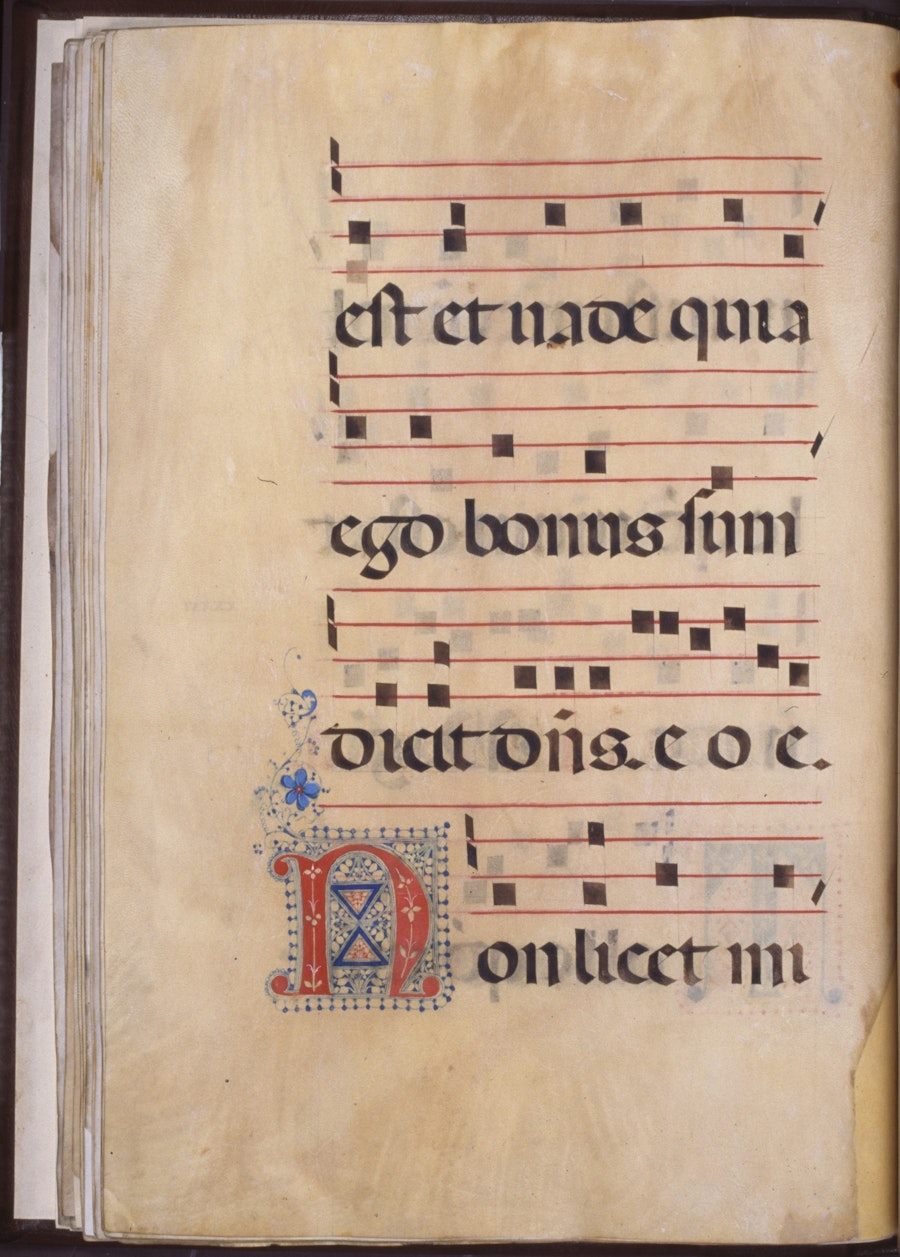 est et uade quia
ego bonus sum
dicit dn̄s. e o e.
Non licet mi